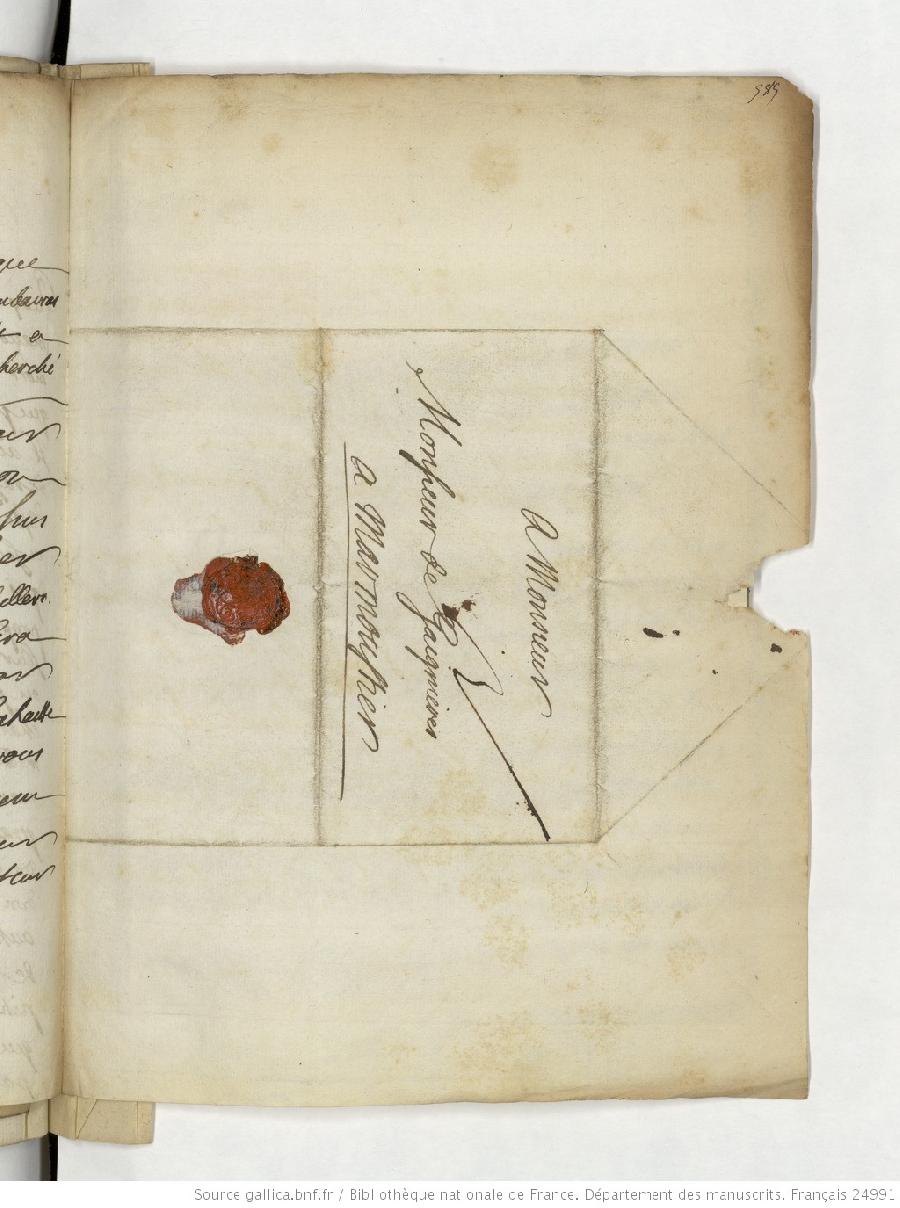 585
A Monsieur
Monsieur de Gaignieres
a Marmoustier
que
a
herché
eur
on
er
ira
vous
eur
Source gallica.bnf.fr / Bibliothèque nationale de France. Département des manuscrits. Français 24991